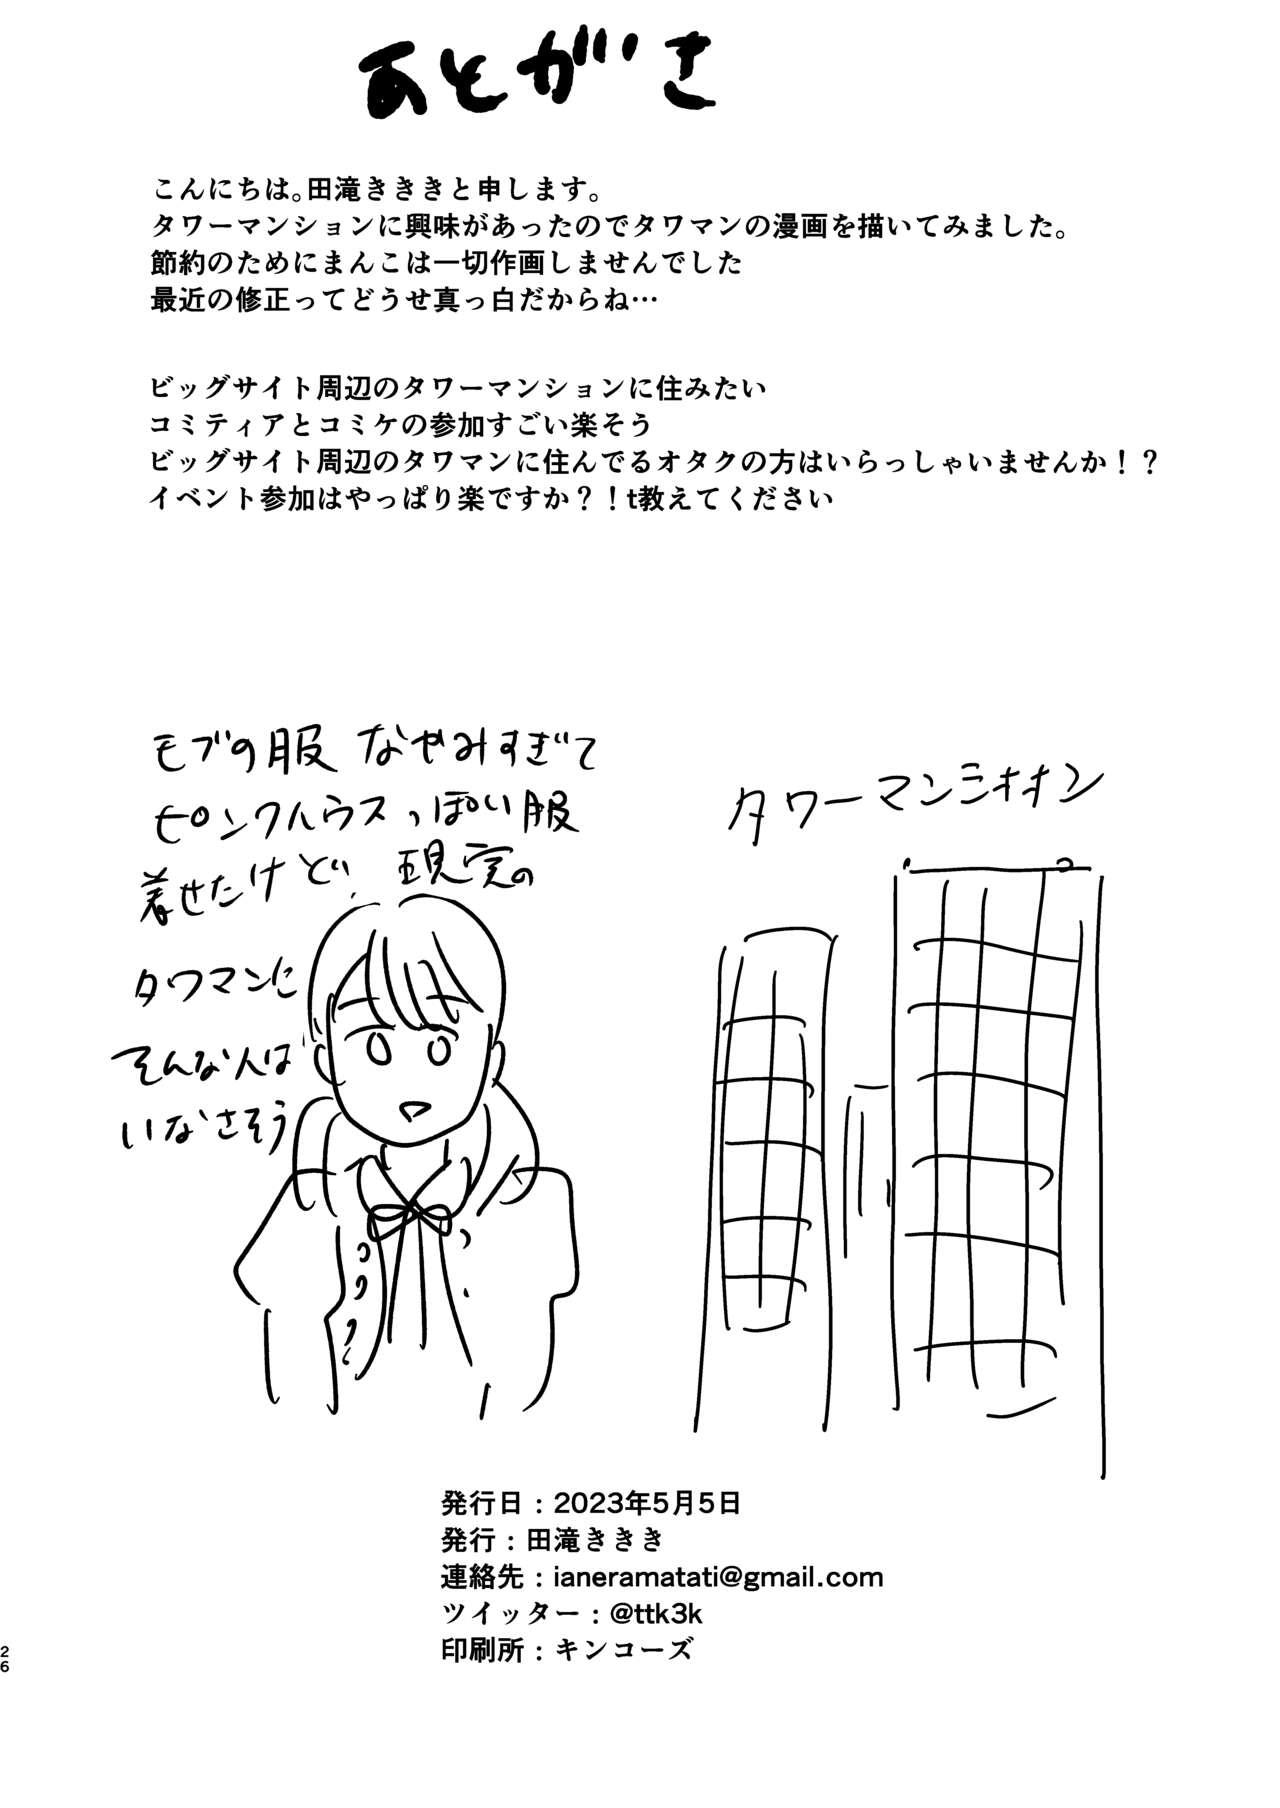 あとがき
こんにちは。田滝きききと申します。
タワーマンションに興味があったのでタワマンの漫画を描いてみました。
節約のためにまんこは一切作画しませんでした
最近の修正ってどうせ真っ白だからね…
ビッグサイト周辺のタワーマンションに住みたい
コミティアとコミケの参加すごい楽そう
ビッグサイト周辺のタワマンに住んでるオタクの方はいらっしゃいませんか！？
イベント参加はやっぱり楽ですか？！t教えてください
モブの服 なやみすぎて
ピンクハウスっぽい服
着せたけど、現実の
タワマンに
そんな人は
いなさそう
タワーマンシオオン
発行日：2023年5月5日
発行：田滝ききき
連絡先：ianeramatati@gmail.com
ツイッター：@ttk3k
印刷所：キンコーズ
26